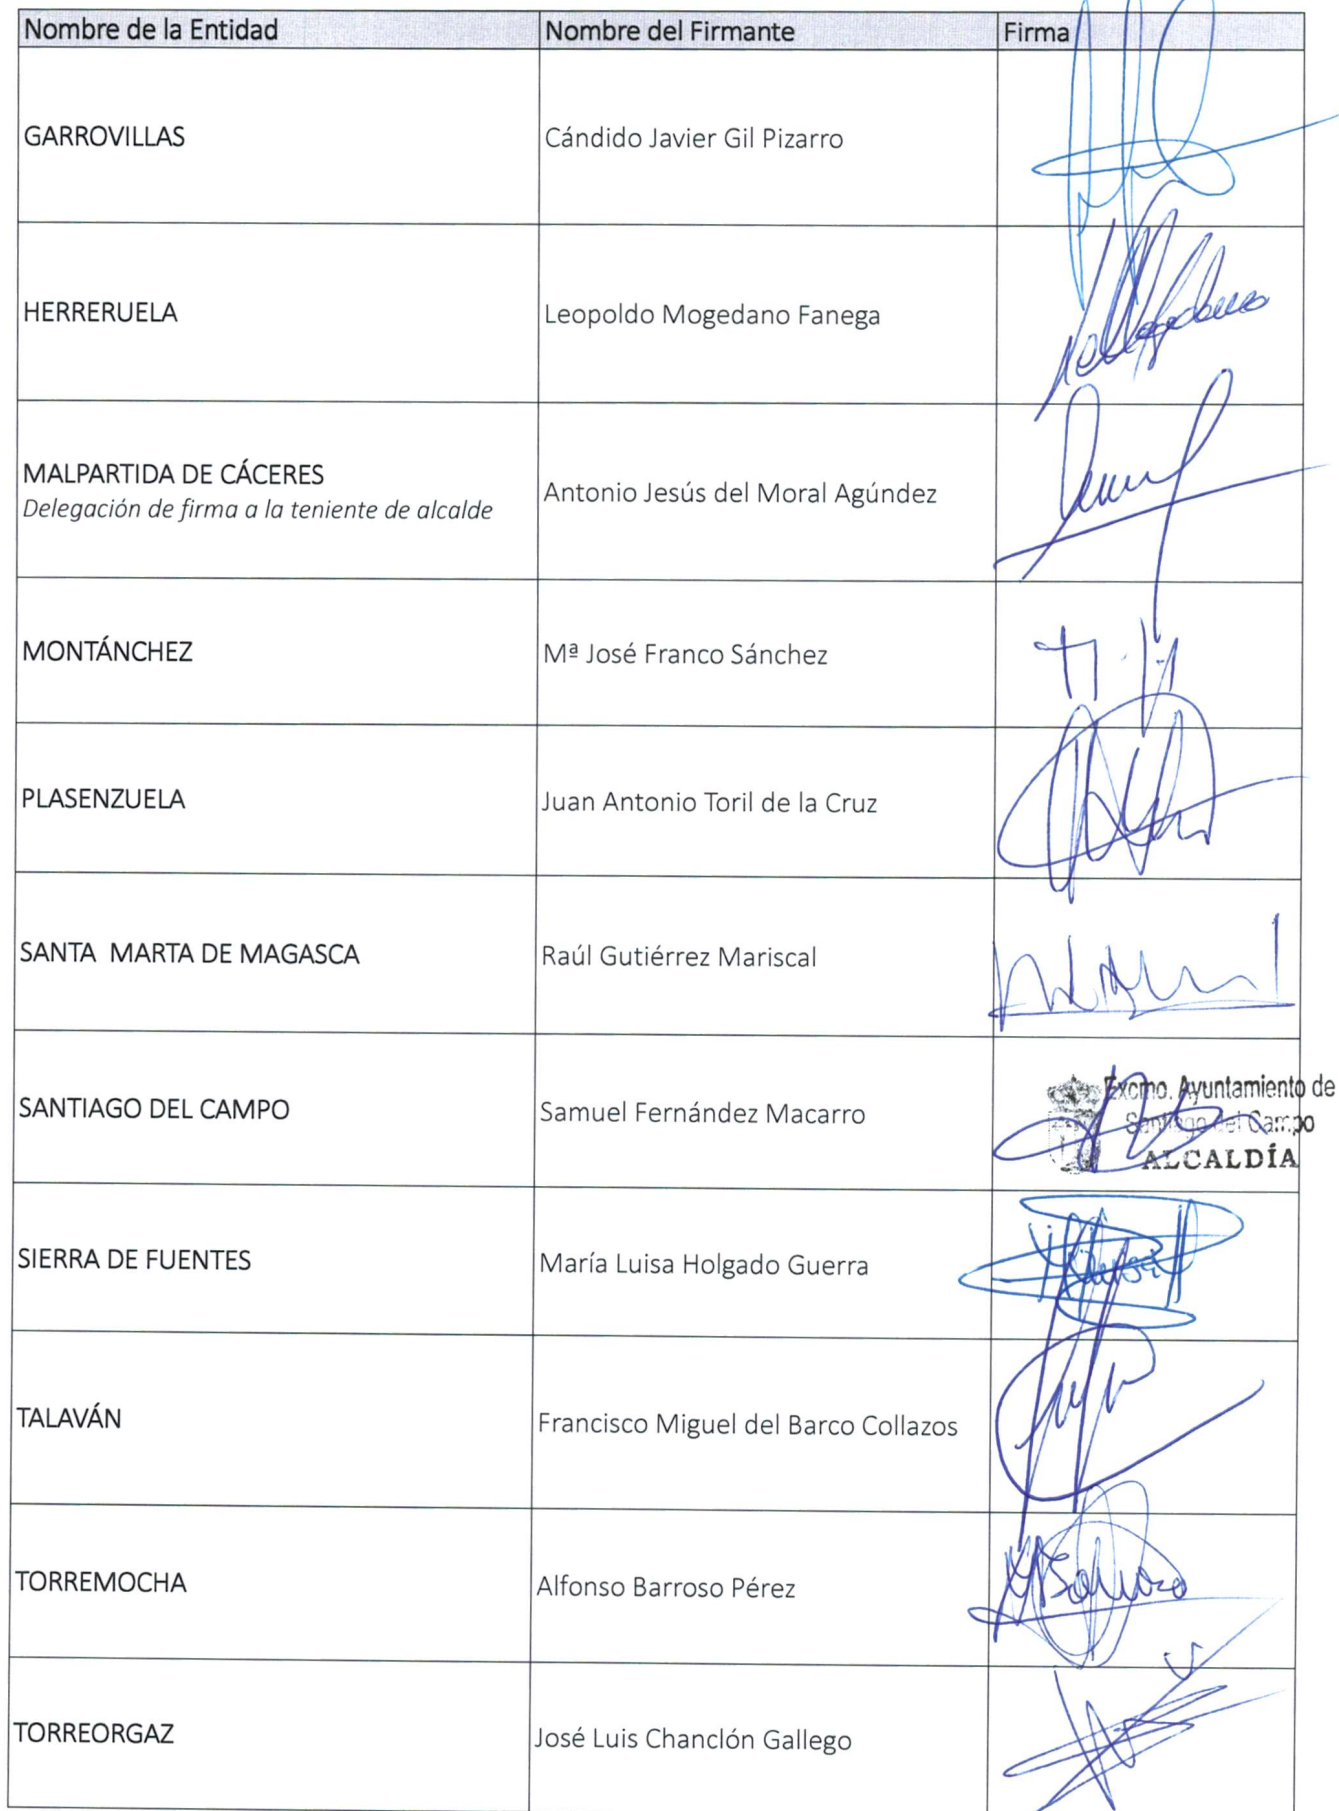 Nombre de la Entidad Nombre del Firmante Firma
GARROVILLAS Cándido Javier Gil Pizarro
HERRERUELA Leopoldo Mogedano Fanega
MALPARTIDA DE CÁCERES
Delegación de firma a la teniente de alcalde Antonio Jesús del Moral Agúndez
MONTÁNCHEZ Mª José Franco Sánchez
PLASENZUELA Juan Antonio Toril de la Cruz
SANTA MARTA DE MAGASCA Raúl Gutiérrez Mariscal
SANTIAGO DEL CAMPO Samuel Fernández Macarro
Excmo. Ayuntamiento de
Santiago del Campo
ALCALDÍA
SIERRA DE FUENTES María Luisa Holgado Guerra
TALAVÁN Francisco Miguel del Barco Collazos
TORREMOCHA Alfonso Barroso Pérez
TORREORGAZ José Luis Chanclón Gallego